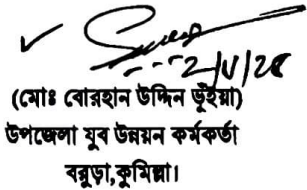 (মোঃ বোরহান উদ্দিন ভূঁইয়া)
উপজেলা যুব উন্নয়ন কর্মকর্তা
বরুড়া,কুমিল্লা।